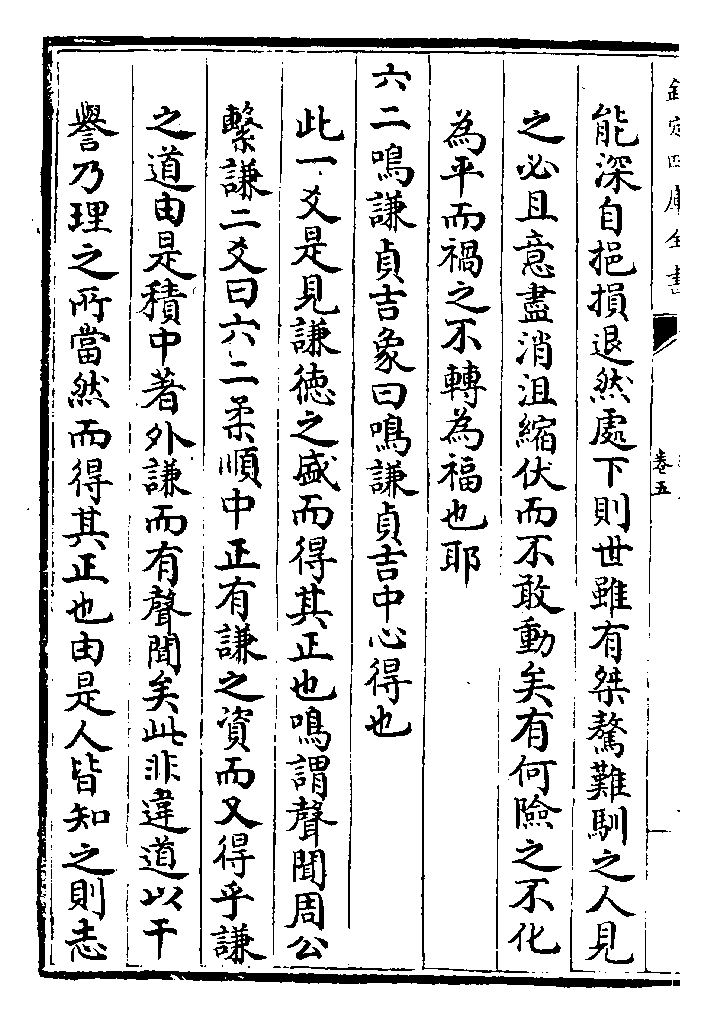 欽定四庫全書
卷五
能深自挹損退然處下則世雖有桀驁難馴之人見
之必且意盡消沮縮伏而不敢動矣有何險之不化
為平而禍之不轉為福也耶
六二鳴謙貞吉象曰鳴謙貞吉中心得也
此一爻是見謙徳之盛而得其正也鳴謂聲聞周公
繫謙二爻曰六二柔順中正有謙之資而又得乎謙
之道由是積中著外謙而有聲聞矣此非違道以干
譽乃理之所當然而得其正也由是人皆知之則志